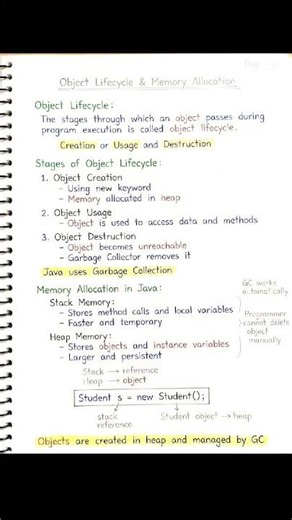 Object Lifecycle & Memory Allocation
Object Lifecycle:
The stages through which an object passes during
program execution is called object lifecycle.
Creation or Usage and Destruction
Stages of Object Lifecycle:
1. Object Creation
- Using new keyword
- Memory allocated in heap
2. Object Usage
- Object is used to access data and methods
3. Object Destruction
- Object becomes unreachable
- Garbage Collector removes it
Java uses Garbage Collection
GC works
automatically
Programmer
cannot delete
object
manually
Memory Allocation in Java:
Stack Memory:
- Stores method calls and local variables
- Faster and temporary
Heap Memory:
- Stores objects and instance variables
- Larger and persistent
Stack → reference
Heap → object
Student s = new Student();
stack reference
Student object → heap
Objects are created in heap and managed by GC